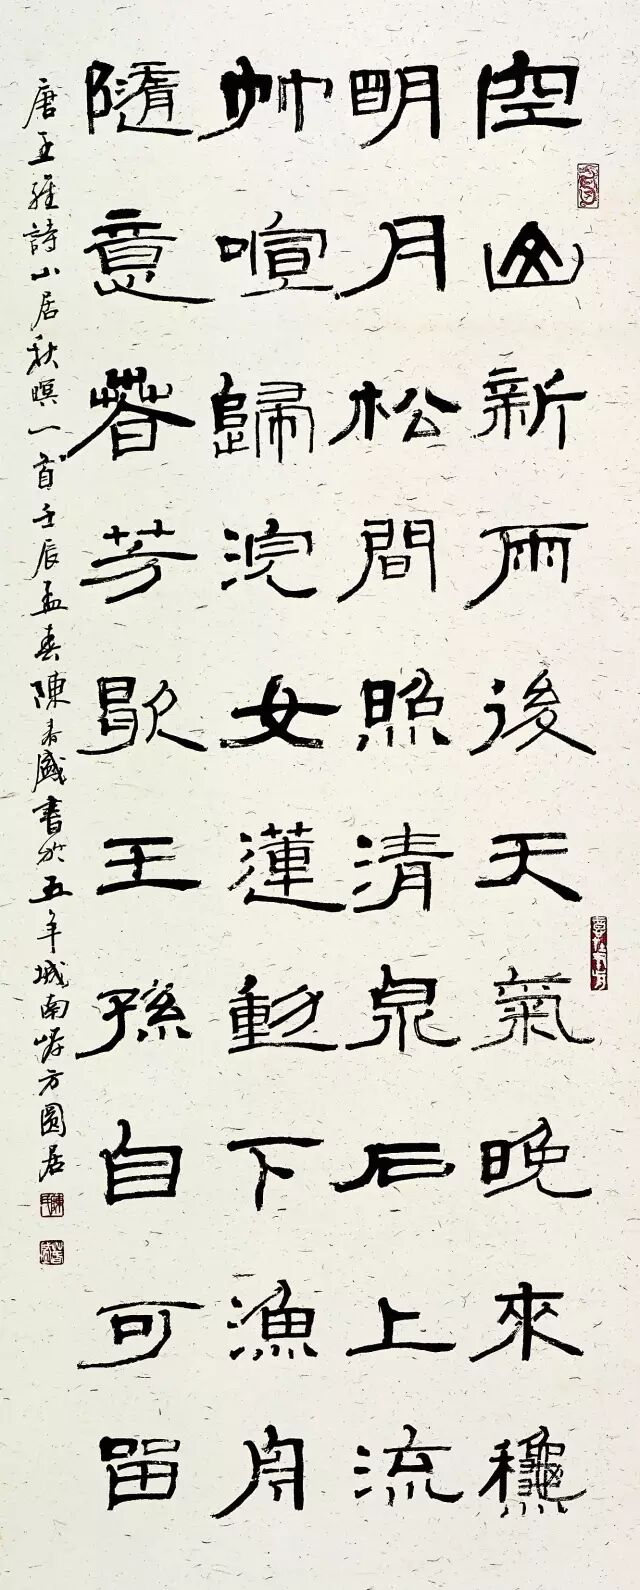 空山新雨後天氣晚來龝
朙月松間照清泉石上流
竹喧歸浣女蓮動下漁舟
隨意春芳歇王孫自可留
唐王維詩山居秋暝一首壬辰孟春陳春盛書於五年城南崿方圓居